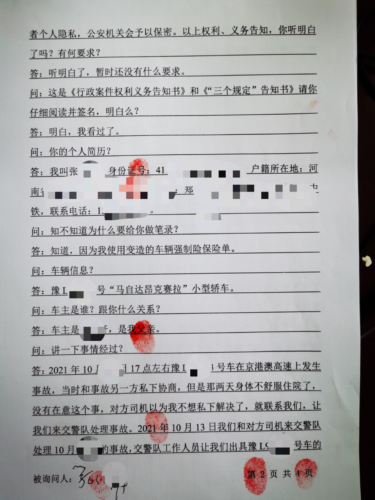 者个人隐私，公安机关会予以保密。以上权利、义务告知，你听明白
了吗？有何要求？
答：听明白了，暂时还没有什么要求。
问：这是《行政案件权利义务告知书》和《“三个规定”告知书》请你
仔细阅读并签名，明白么？
答：明白，我看过了。
问：你的个人简历？
答：我叫张 身份证号：41 户籍所在地：河
南 郑
铁，联系电话：1
问：知不知道为什么要给你做笔录？
答：知道，因为我使用变造的车辆强制险保险单。
问：车辆信息？
答：豫L 号“马自达昂克赛拉”小型轿车。
问：车主是谁？跟你什么关系？
答：车主是 ，是我父亲。
问：讲一下事情经过？
答：2021年10月 17点左右豫L 1号车在京港澳高速上发生
事故，当时和事故另一方私下协商，但是那两天身体不舒服住院了，
没有在意这个事，对方司机以为我不想私下解决了，就联系我们，让
我们来交警队处理事故。2021年10月13日我们和对方司机来交警队
处理10月 的事故，交警队工作人员让我们出具豫L9 号车的
被询问人： 第2页共4页